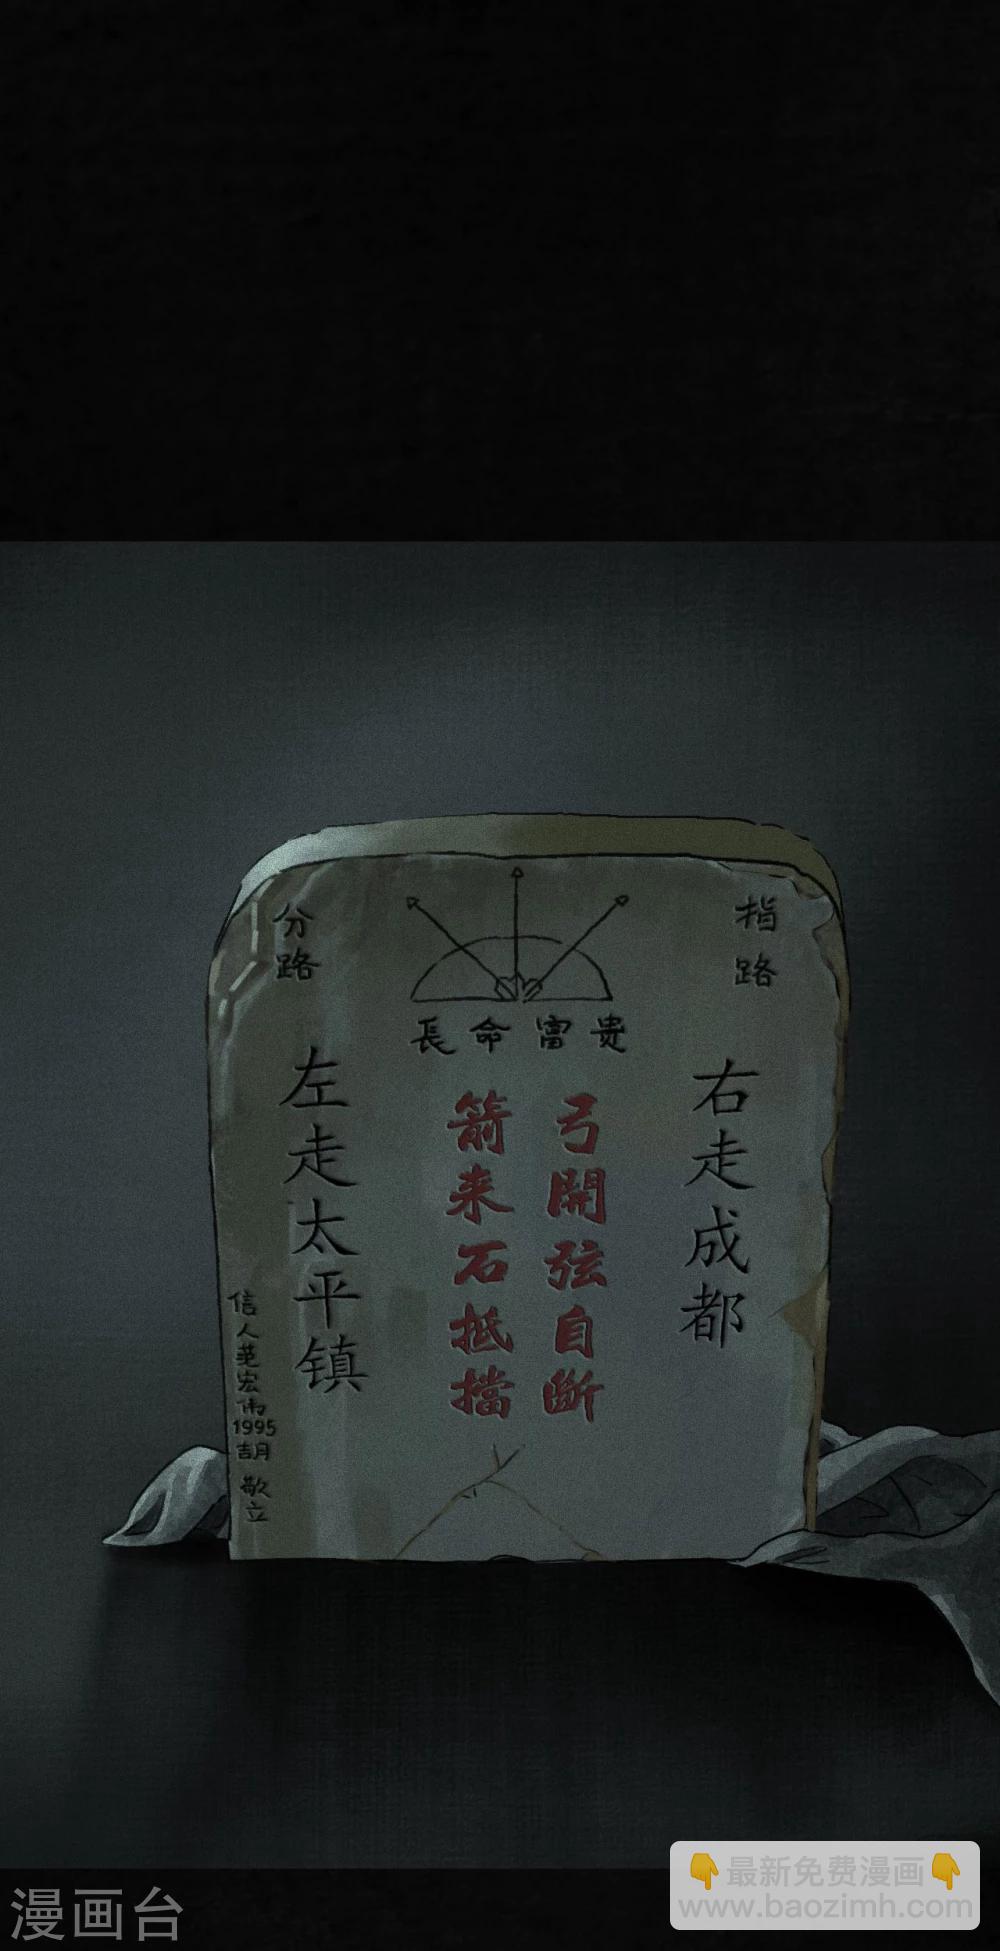 指路
分路
長命富贵
右走成都
弓開弦自斷
箭来石抵擋
左走太平镇
信人范宏伟
1995
吉月
敬立
漫画台
👇最新免费漫画👇
www.baozimh.com